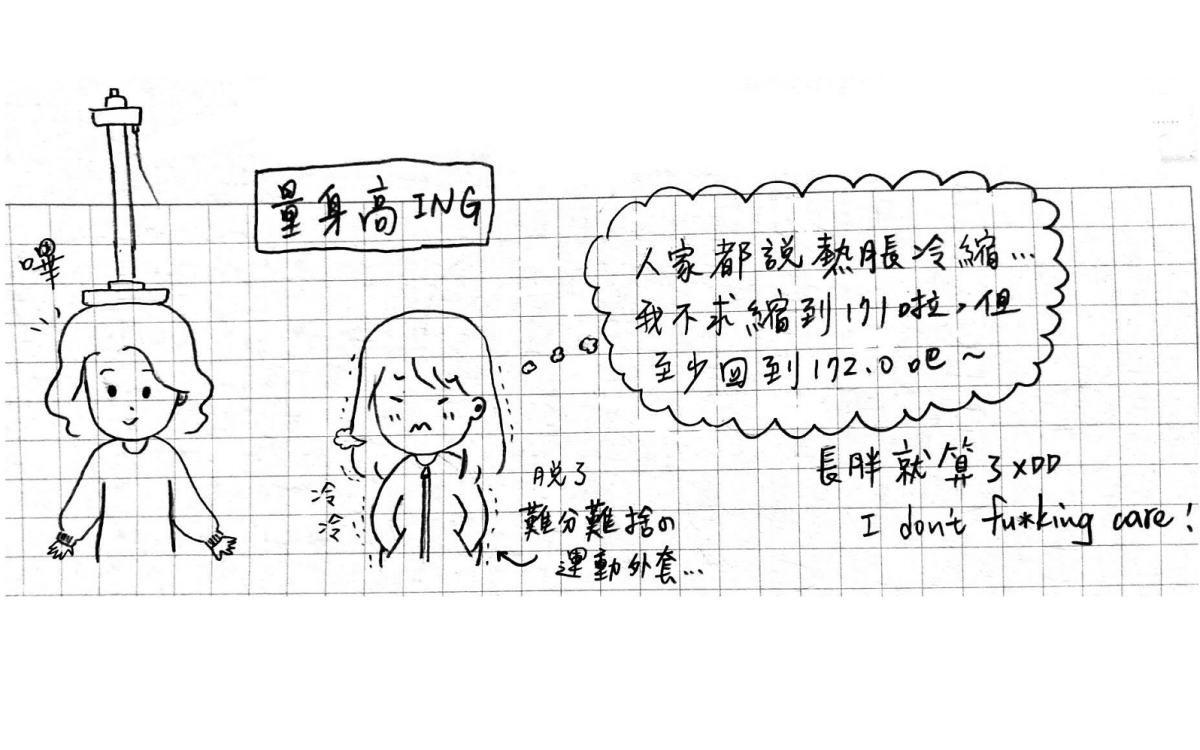 量身高ING
嗶
人家都說熱脹冷縮...
我不求縮到171啦，但
至少回到172.0吧～
長胖就算了XDD
I don't fu*king care!
冷
冷
脫了
難分難捨の
運動外套...